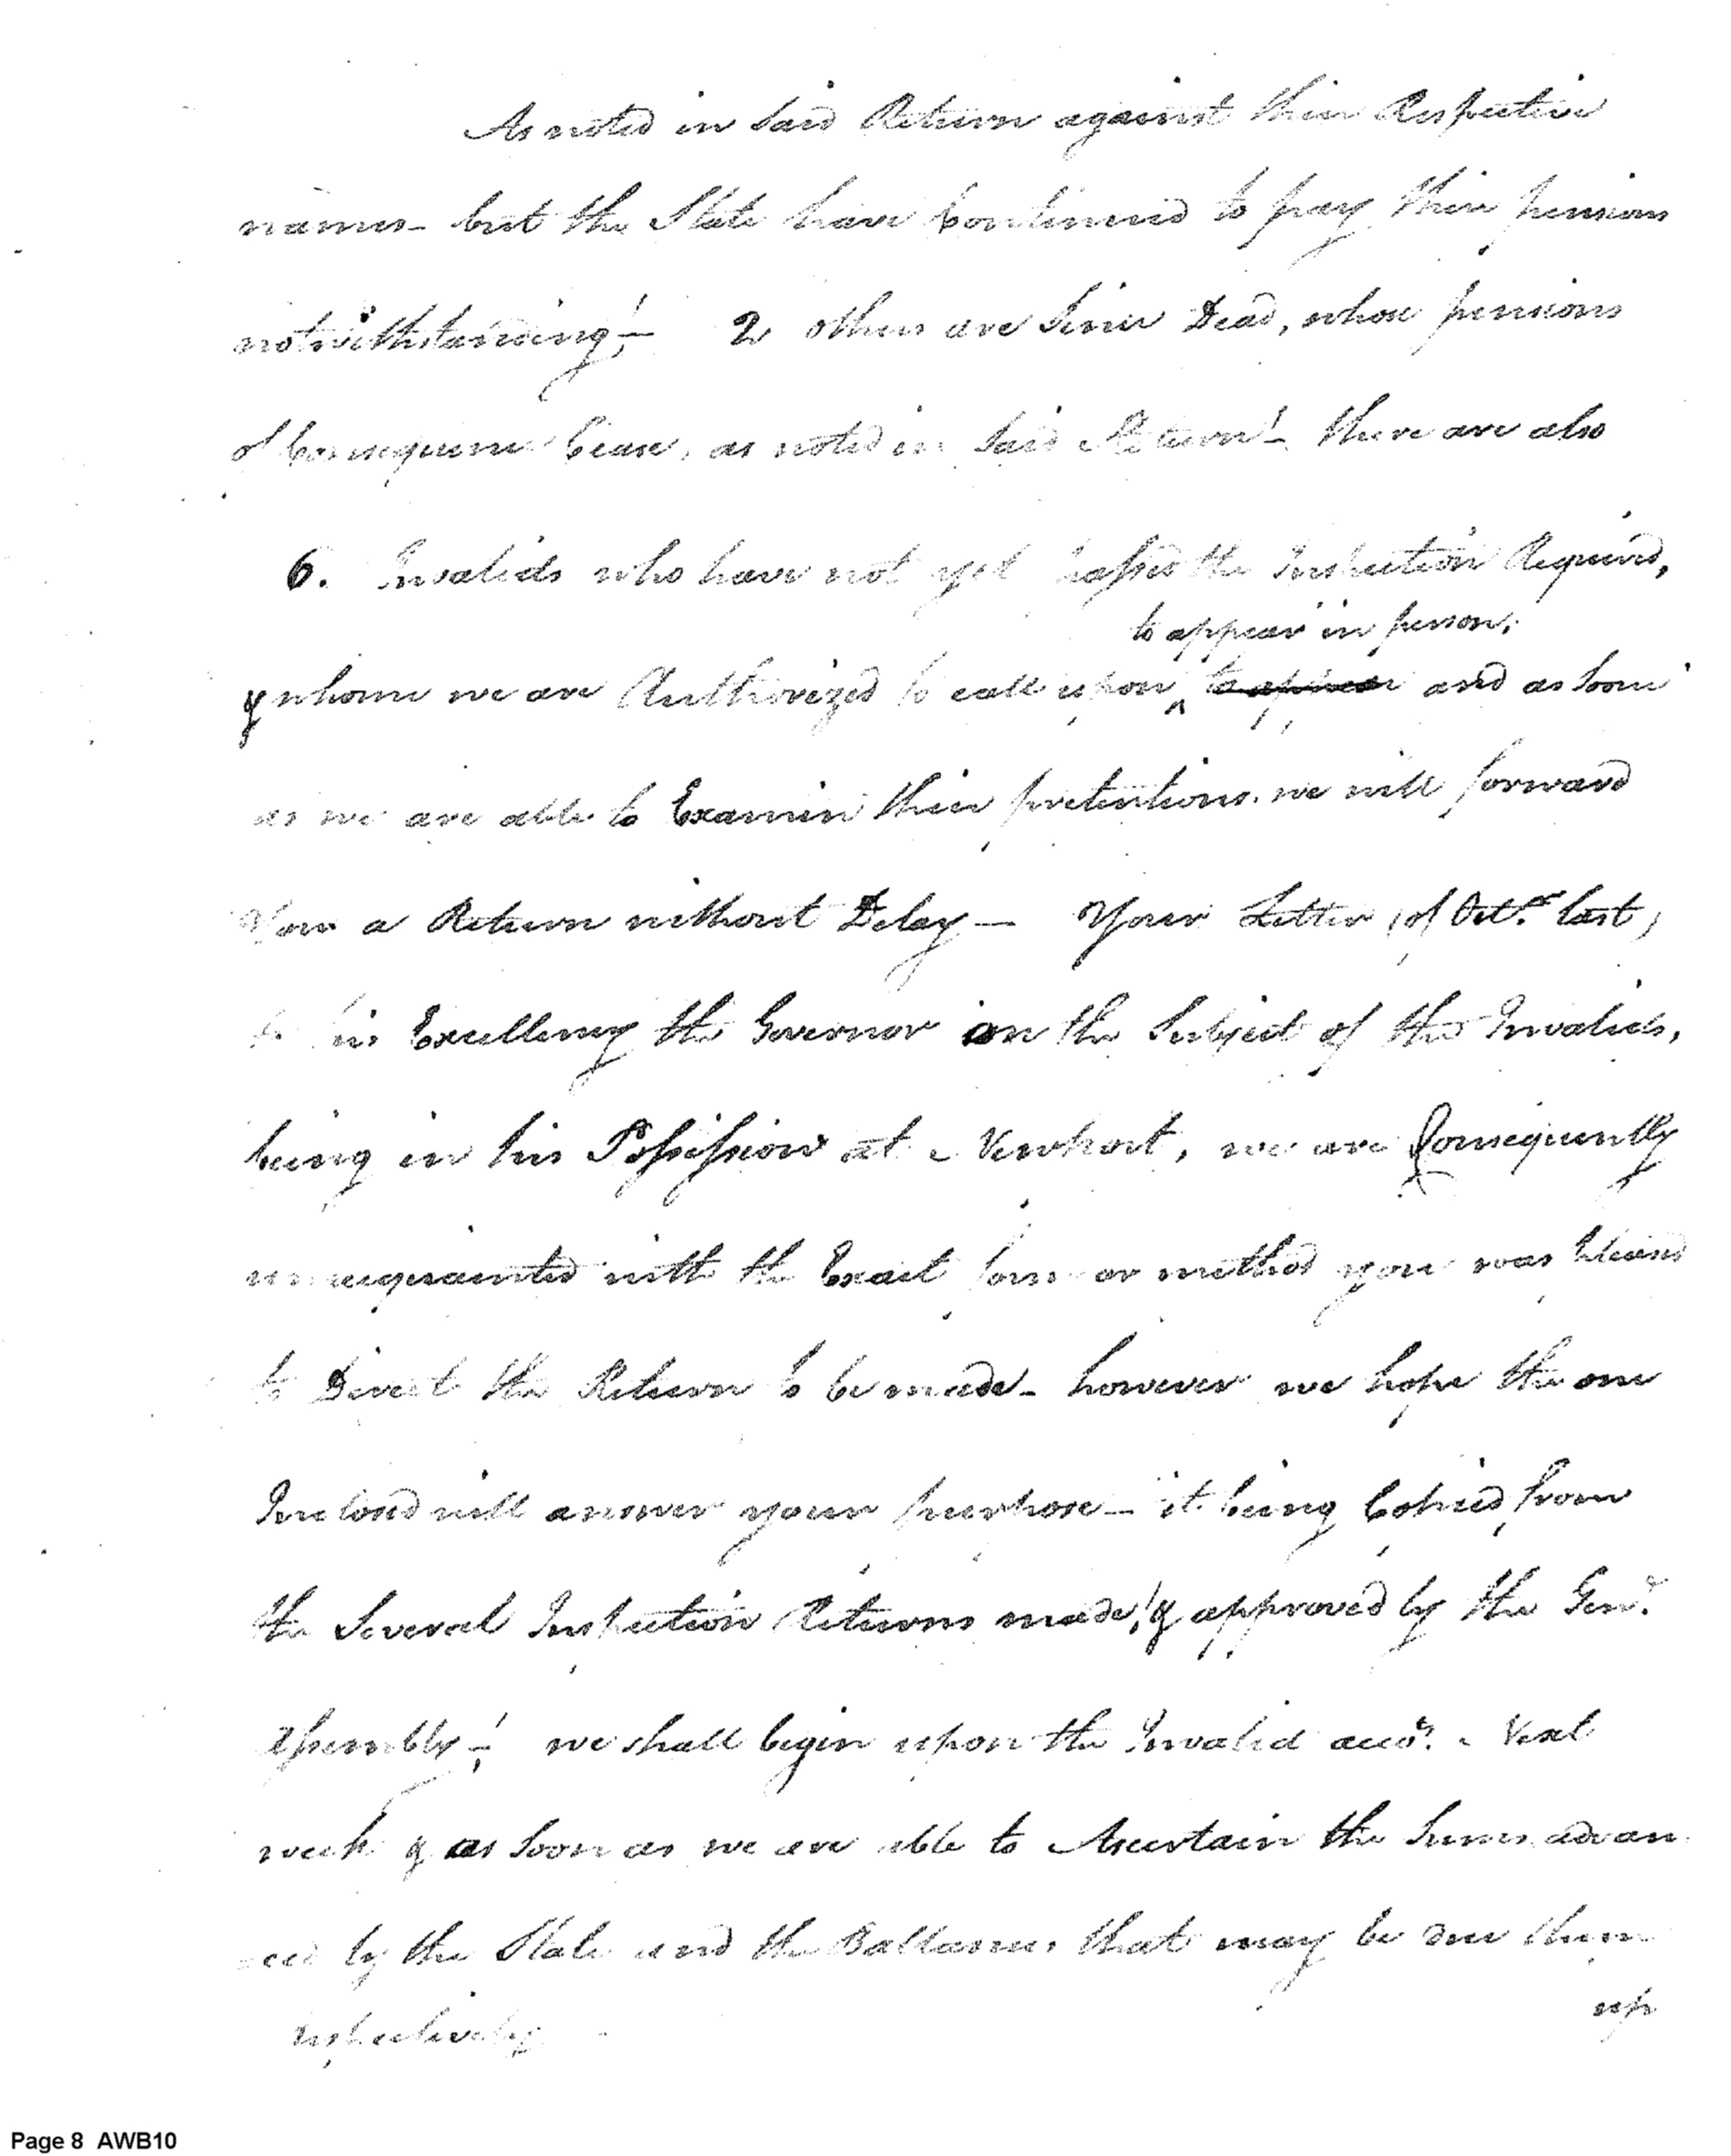 As noted in said Return against their Respective
names - but the State have Continued to pay their pensions
notwithstanding! - 2 others are Since Dead, whose pensions
of Consequence Cease, as noted in said Return! - there are also
6. Invalids who have not yet passed the Inspection Required,
to appear in person,
& whom we are Authorized to call upon ^ to appear and as soon
as we are able to Examin their pretentions, we will forward
You a Return without Delay - Your Letter (of Octr. last)
to his Excellency the Governor on the Subject of the Invalids,
being in his Possession at Newport, we are Consequently
unacquainted with the Exact form or method you was pleased
to Direct the Return to be made - however we hope the one
Inclosed will answer your purpose - it being Copied from
the Several Inspection Returns made, & approved by the Genl.
Assembly! - we shall begin upon the Invalid accots. Next
week & as soon as we are able to Ascertain the Sums advan
ced by the State and the Ballances that may be due them
respectively
up
Page 8 AWB10